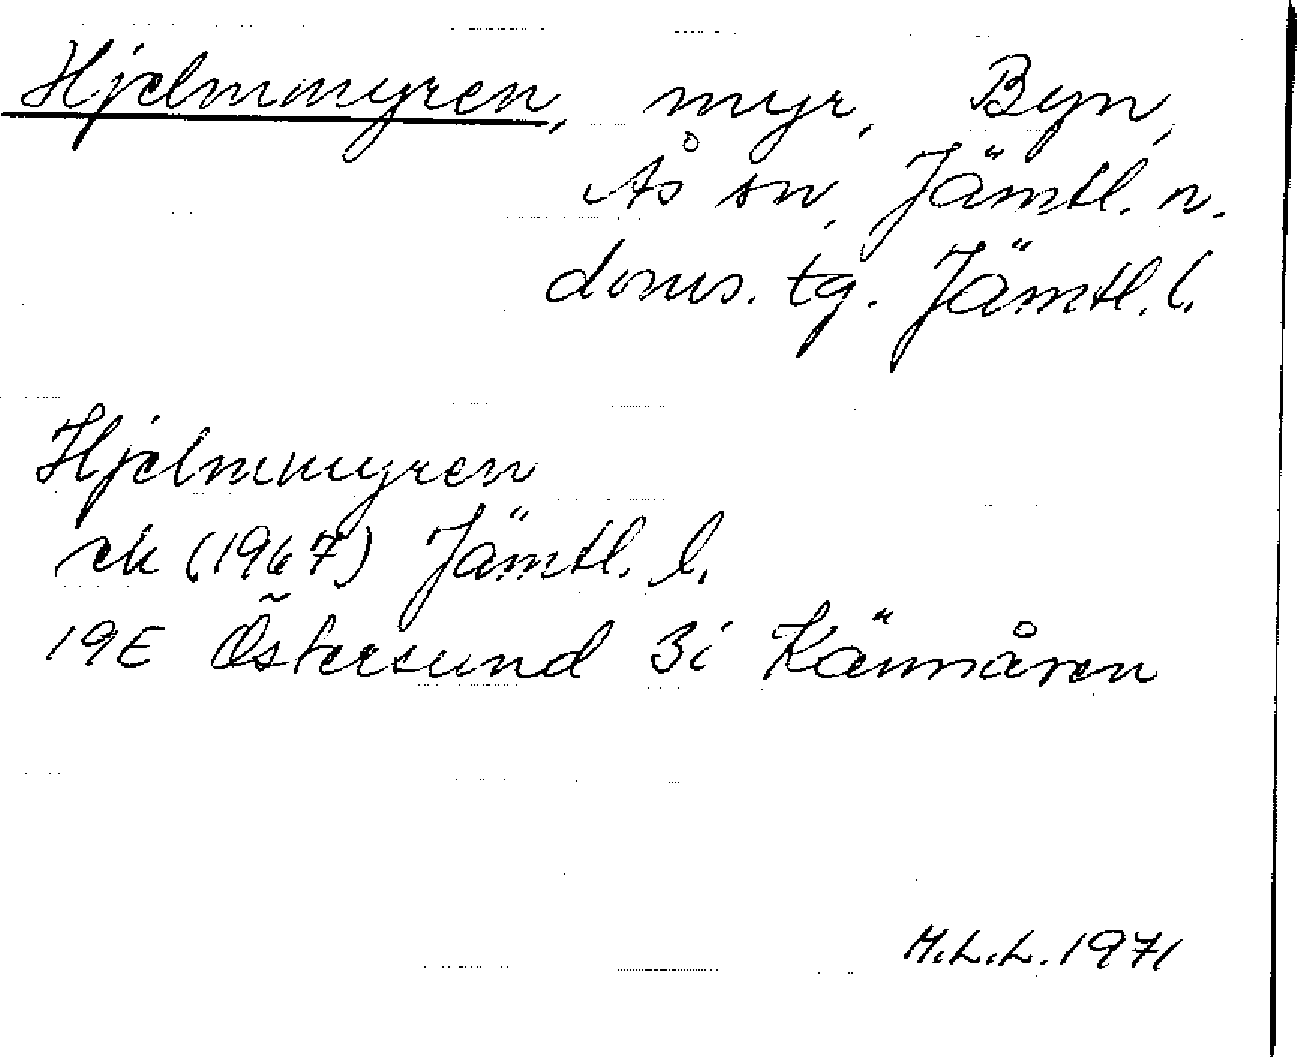 Hjelmmyren, myr, Byn,
Ås sn, Jämtl. n.
doms. tg. Jämtl. l.
Hjelmmyren
ek (1967) Jämtl. l.
19E Östersund 3i Kännåren
M.L.L. 1971